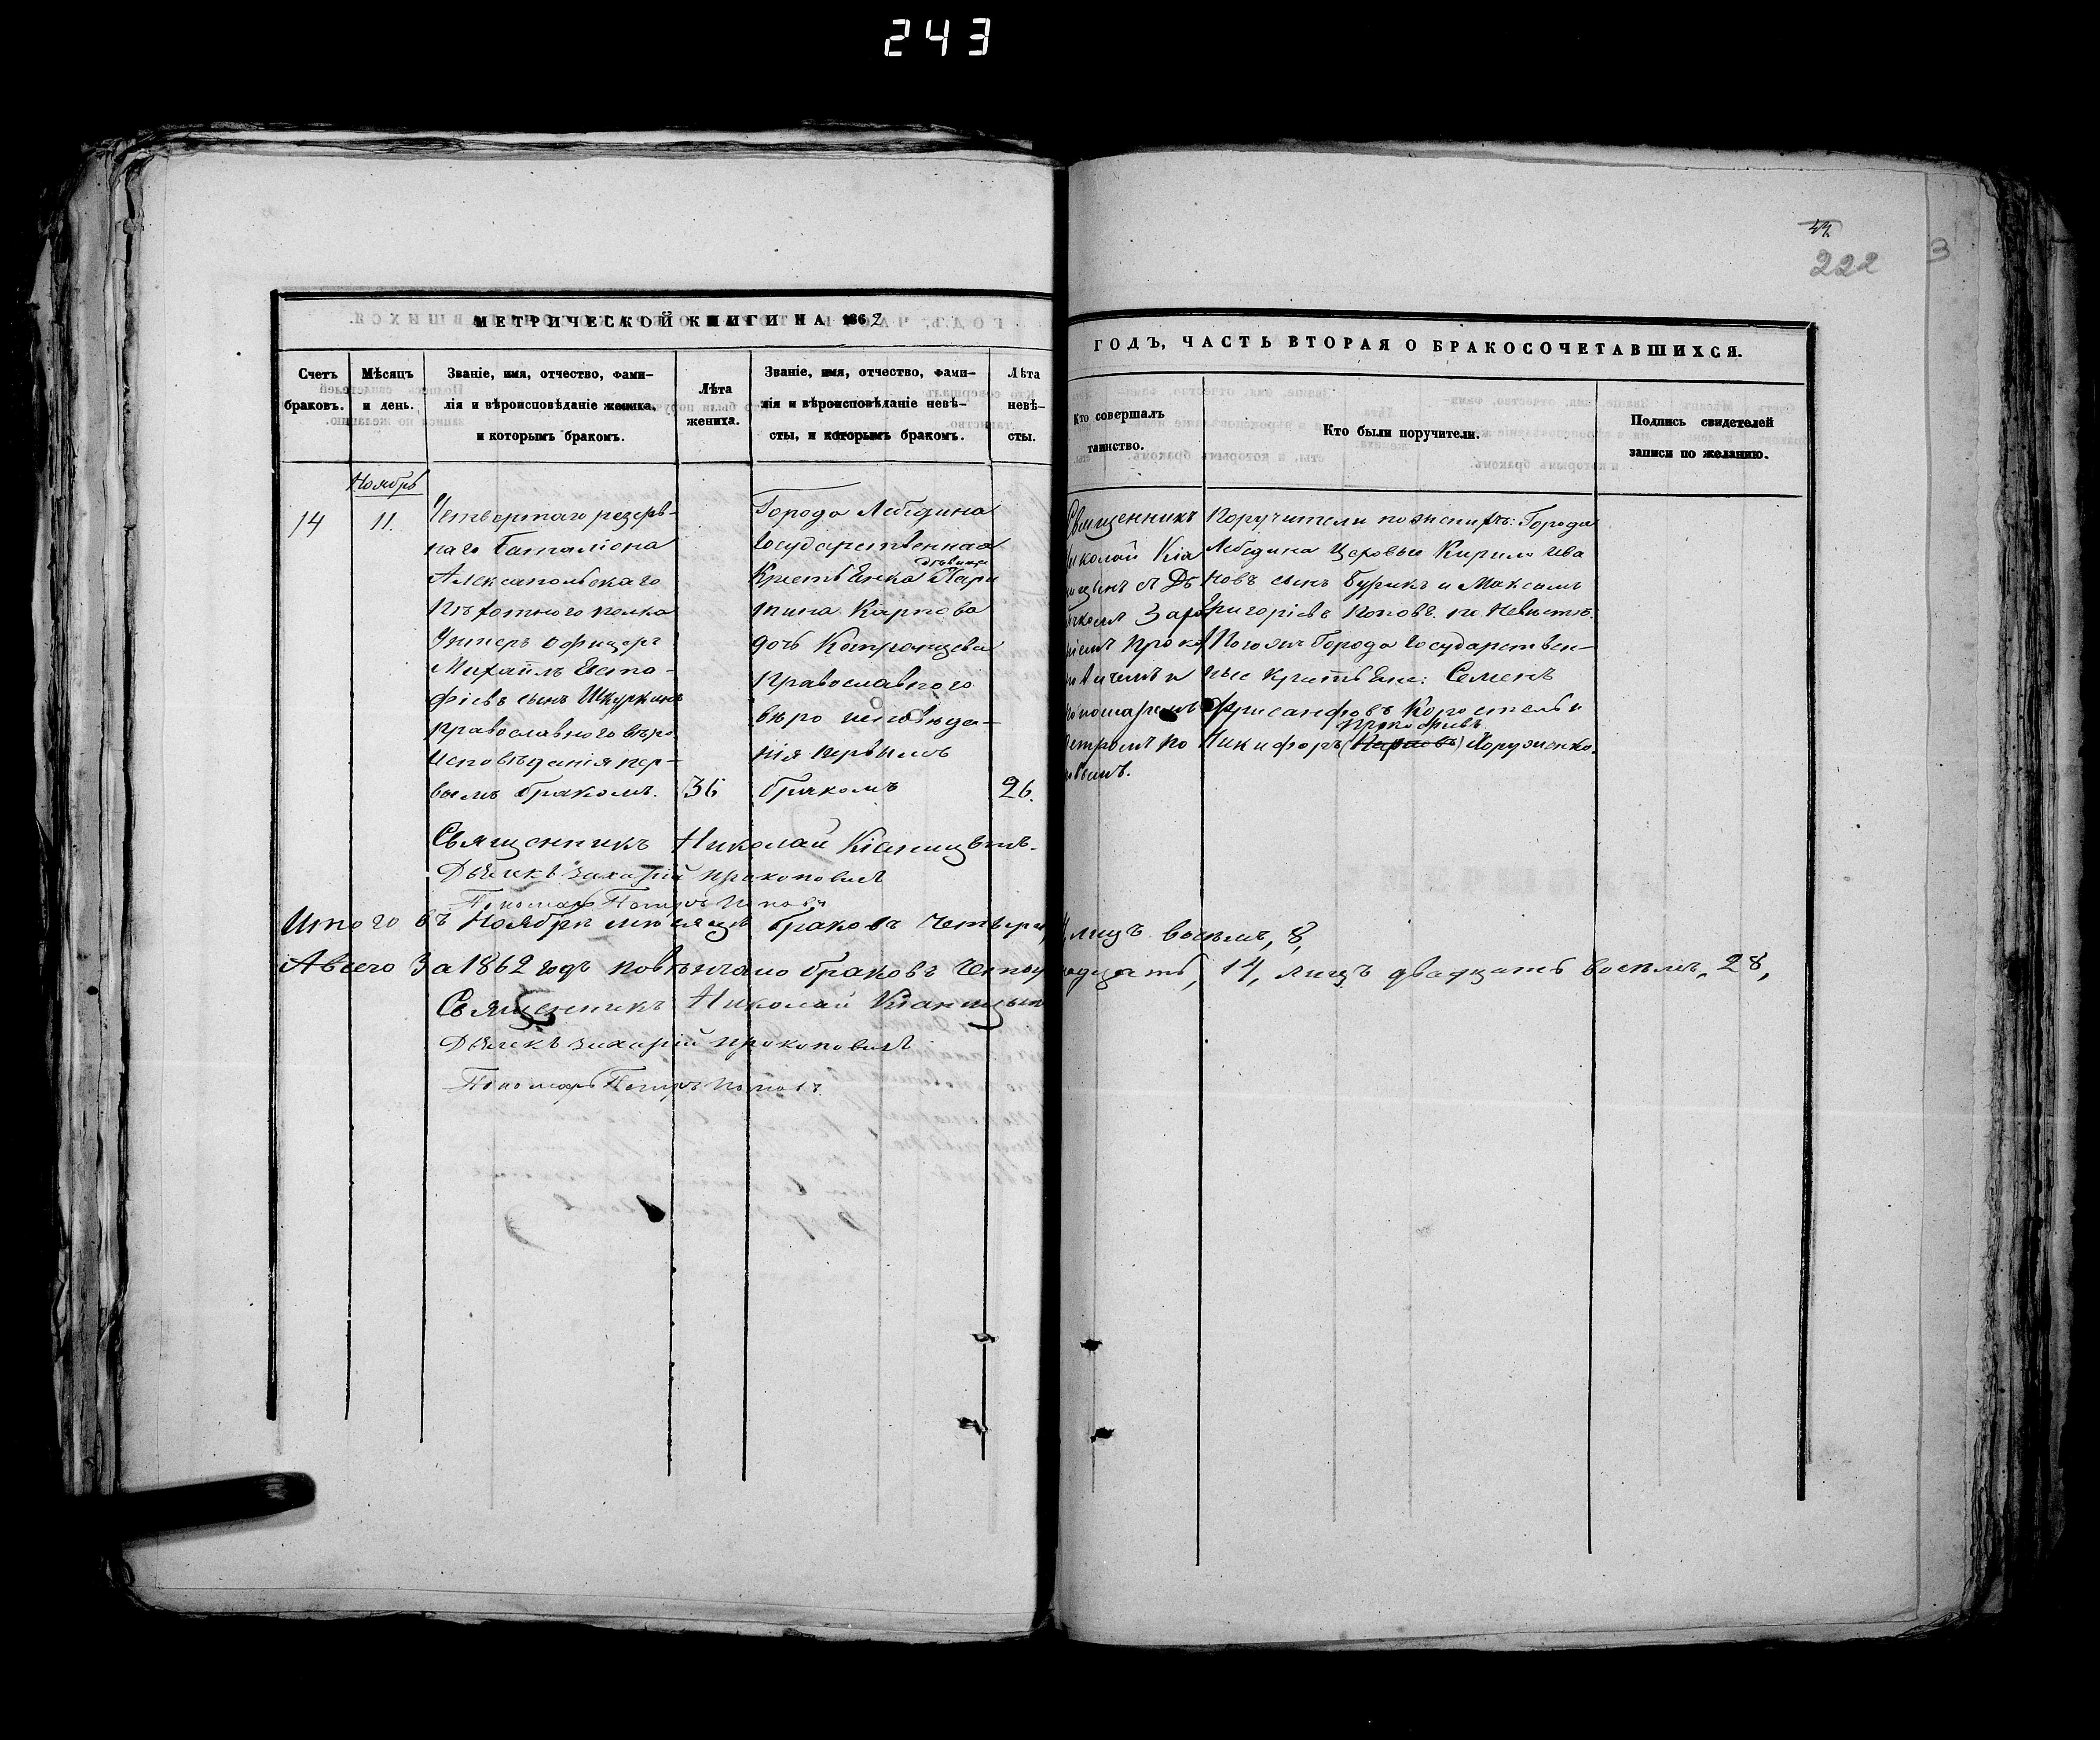 243
42
222
3
МЕТРИЧЕСКОЙ КНИГИ НА 1862
ГОДЪ, ЧАСТЬ ВТОРАЯ О БРАКОСОЧЕТАВШИХСЯ.
Счетъ браковъ.
Мѣсяцъ и день.
Званіе, имя, отчество, фами-
лія и вѣроисповѣданіе жениха,
и которымъ бракомъ.
Лѣта жениха.
Званіе, имя, отчество, фами-
лія и вѣроисповѣданіе невѣ-
сты, и которымъ бракомъ.
Лѣта невѣ-
сты.
Кто совершалъ
таинство.
Кто были поручители.
Подпись свидетелей
записи по желанію.
Ноябрь
14
11.
Четвертаго резерв-
наго Баталіона
Алексапольскаго
Пѣхотнаго полка
Унтеръ офицеръ
Михаилъ Евста-
фіевъ сынъ Шкуркинъ
православнаго вѣро
исповѣданія пер-
вымъ бракомъ.
36
Города Лебедина
Государственная
дѣвица
Крестьянка Хари
тина Карпова
дочь
православнаго
вѣро исповѣда-
нія первымъ
бракомъ
26.
Священникъ
Николай Кіа
ницынъ с Дь
ячкомъ Заха
ріемъ Проко
повичемъ и
пономаремъ
Петромъ По
повымъ.
Поручители по женихѣ: Города
Лебедина Цеховые Кирило Ива
новъ сынъ Бурикъ и Максимъ
Григоріевъ Поповъ. по Невѣстѣ:
Тогожъ Города Государствен-
ные Крестьяне: Семенъ
Хрисанфовъ Коростель и
Прокофіевъ
Никифоръ (Карповъ) Хоруженко.
Священникъ Николай Кіаницынъ.
Дьячекъ Захарій Прокоповичъ
Пономарь Петръ Поповъ
Итого въ Ноябрѣ мѣсяцѣ браковъ Четыре, 4, лицъ восемь, 8,
А всего За 1862 годъ повѣнчано браковъ Четыр надцать, 14, лицъ двадцать восемь, 28,
Священникъ Николай Кіаницынъ
Дьячекъ Захарій Прокоповичъ
Пономарь Петръ Поповъ.